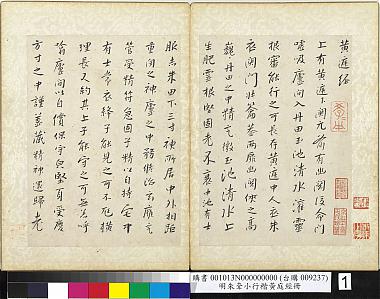 黄庭經
上有黄庭下關元前有幽闕後命門
噓吸廬間入丹田玉池清水灌靈
根審能行之可長存黄庭中人衣朱
衣關門壮籥盖兩扉幽闕侠之高
巍丹田之中精氣微玉池清水上
生肥靈根堅固老不衰中池有士
服赤朱田下三寸神所居中外相距
重閉之神廬之中務脩治玄廱氣
管受精符急固子精以自持宅中
有士常衣絳子能見之可不病橫
理長尺約其上子能守之可無恙呼
翕廬間以自償保守完堅身受慶
方寸之中謹盖藏精神還歸老
購書 001013N000000000 (台購 009237)
明朱耷小行楷黄庭經冊
1